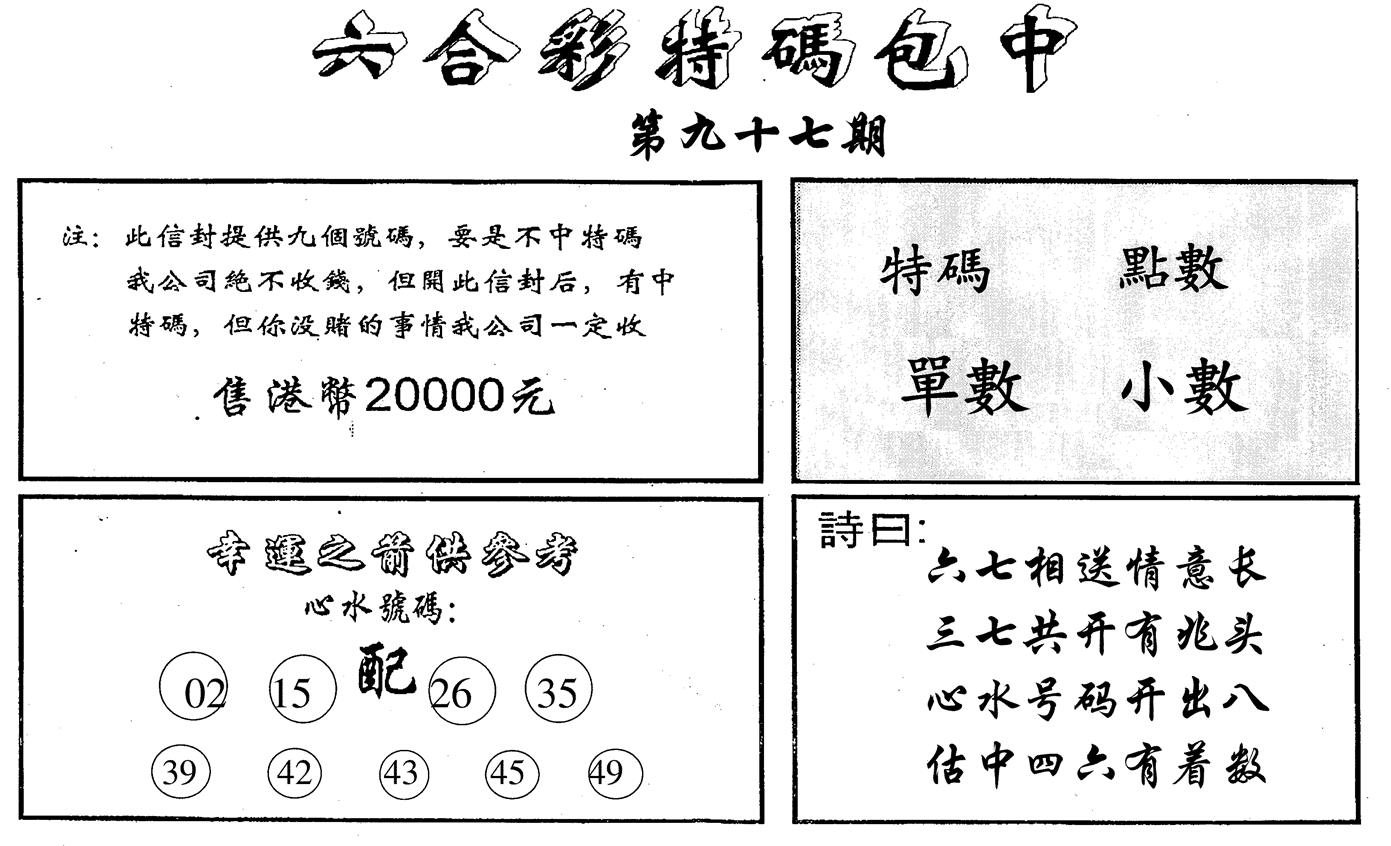 六合彩特碼包中
第九十七期
注：此信封提供九個號碼，要是不中特碼
我公司絕不收錢，但開此信封后，有中
特碼，但你没賭的事情我公司一定收
售港幣20000元
特碼 點數
單數 小數
幸運之箭供參考
心水號碼：
02 15 配 26 35
39 42 43 45 49
詩曰：
六七相送情意长
三七共开有兆头
心水号码开出八
估中四六有着数